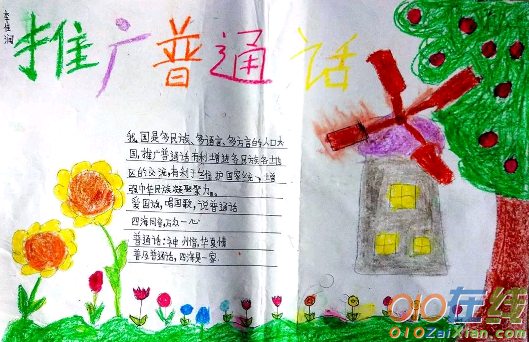 李佳润
推广普通话
我国是多民族、多语言、多方言的人口大
国,推广普通话有利增进各民族各地
区的交流,有利于维护国家统一,增
强中华民族凝聚力。
爱国旗,唱国歌,说普通话
四海同音,万众一心
普通话:神州情,华夏情
普及普通话,四海是一家
010在线
010ZaiXian.com